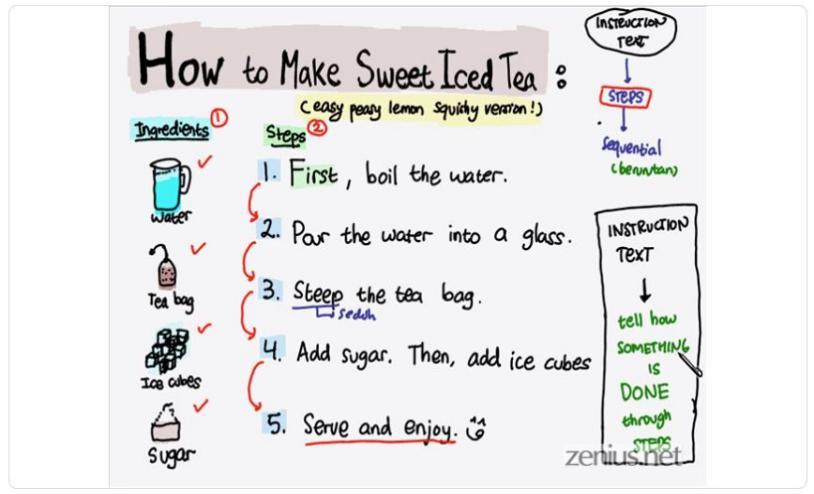 How to Make Sweet Iced Tea :
(easy peasy lemon squishy version!)
Ingredients ①
water
Tea bag
Ice cubes
Sugar
Steps ②
1. First, boil the water.
2. Pour the water into a glass.
3. Steep the tea bag.
seduh
4. Add sugar. Then, add ice cubes
5. Serve and enjoy.
INSTRUCTION
TEXT
STEPS
Sequential
(berurutan)
INSTRUCTION
TEXT
tell how
SOMETHING
IS
DONE
through
STEPS
zenius.net